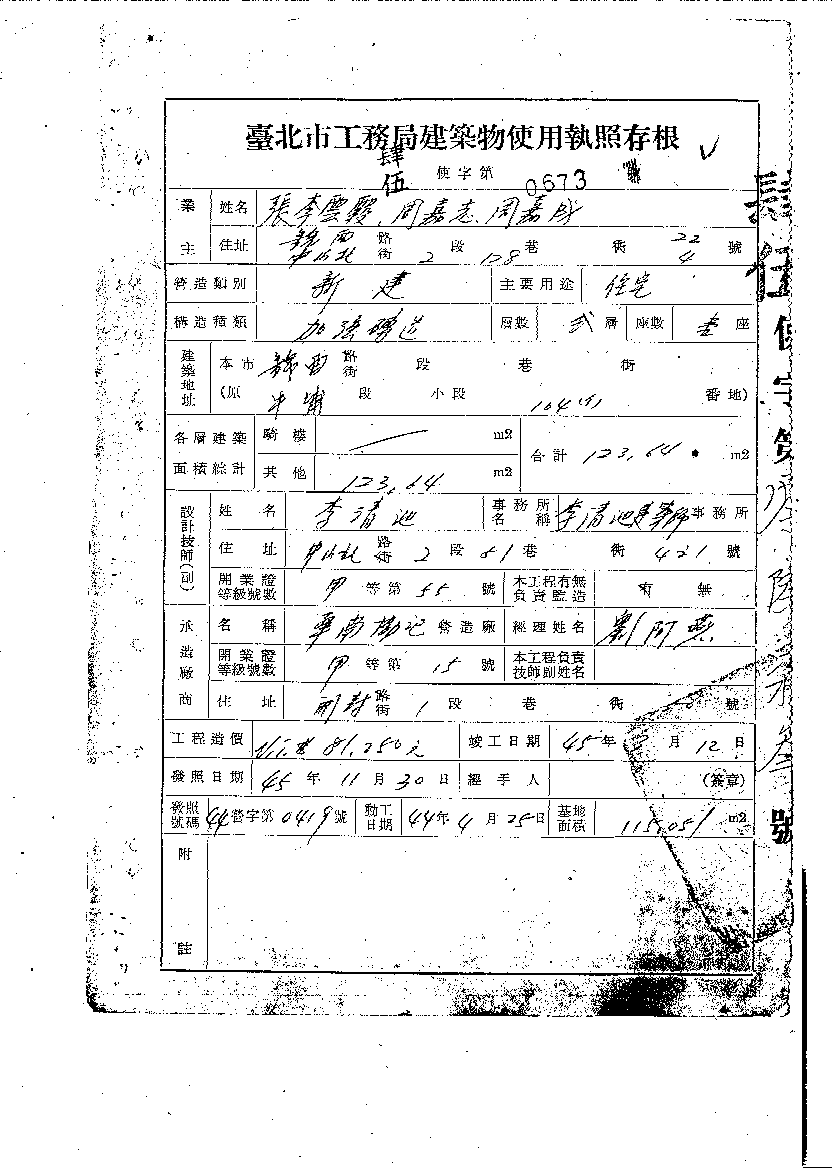 臺北市工務局建築物使用執照存根
肆伍 使字第 0673 號
業主 姓名 張李雲霞、周嘉志、周嘉成
住址 錦西 路街 段 巷 衖 22 號
中山北 2 128 4
營造類別 新建 主要用途 住宅
構造種類 加強磚造 層數 貳層 座數 壹座
建築地址 本市 錦西 路街 段 巷 衖
(原 牛埔 段 小段 104 番地)
各層建築面積綜計 騎樓 — m2 合計 123.64 m2
其他 123.64
設計技師(副) 姓名 李清池 事務所名稱 李清池建築師事務所
住址 中山北 路街 2 段 81 巷 衖 421 號
開業證等級號數 甲 等第 55 號 本工程有無負責監造 有 無
承造廠商 名稱 華南 營造廠 經理姓名 劉阿
開業證等級號數 甲 等第 15 號 本工程負責技師副姓名
住址 開封 路街 1 段 巷 衖 號
工程造價 N.T.$ 81,250元 竣工日期 45年 月 12 日
發照日期 45 年 11 月 30 日 經手人 (簽章)
發照號碼 44營字第 0419 號 動工日期 44年 4 月 25日 基地面積 115.051 m2
附註
肆伍使字第 陸柒叁號